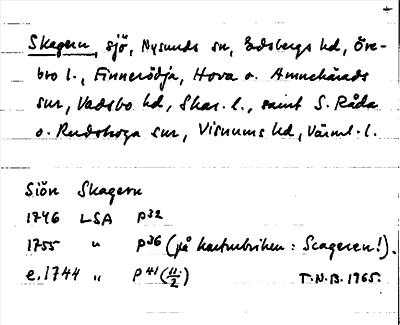 Skagern, sjö, Nysunds sn, Edsbergs hd, Öre-
bro l., Finnerödja, Hova o. Amnehärads
snr, Vadsbo hd, Skar. l., samt S. Råda
o. Rudskoga snr, Visnums hd, Värml. l.
Siön Skagern
1746 LSA P32
1755 " P36 (på kartrubriken: Scageren!).
e.1744 " P41(11/2) T.N.B. 1965.